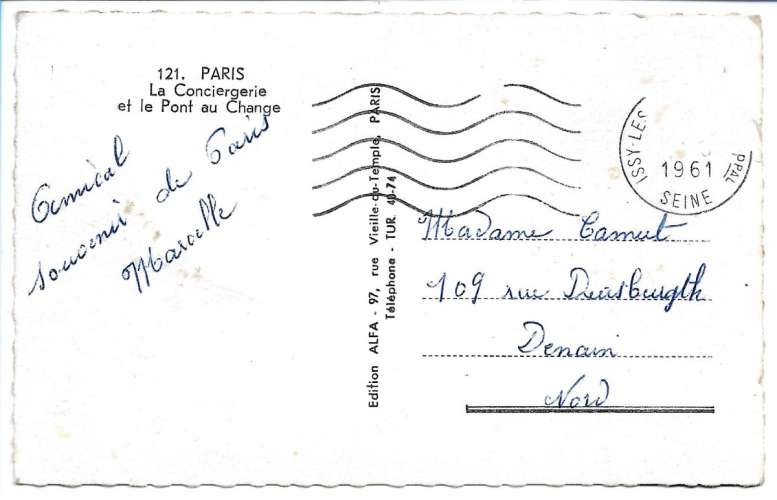 121. PARIS
La Conciergerie
et le Pont au Change
Amical
souvenir de Paris
Marcelle
Edition ALFA - 97, rue Vieille-du-Temple, PARIS
Téléphone - TUR. 48-74
ISSY-LES PPAL
1961
SEINE
Madame
109 rue
Denain
Nord